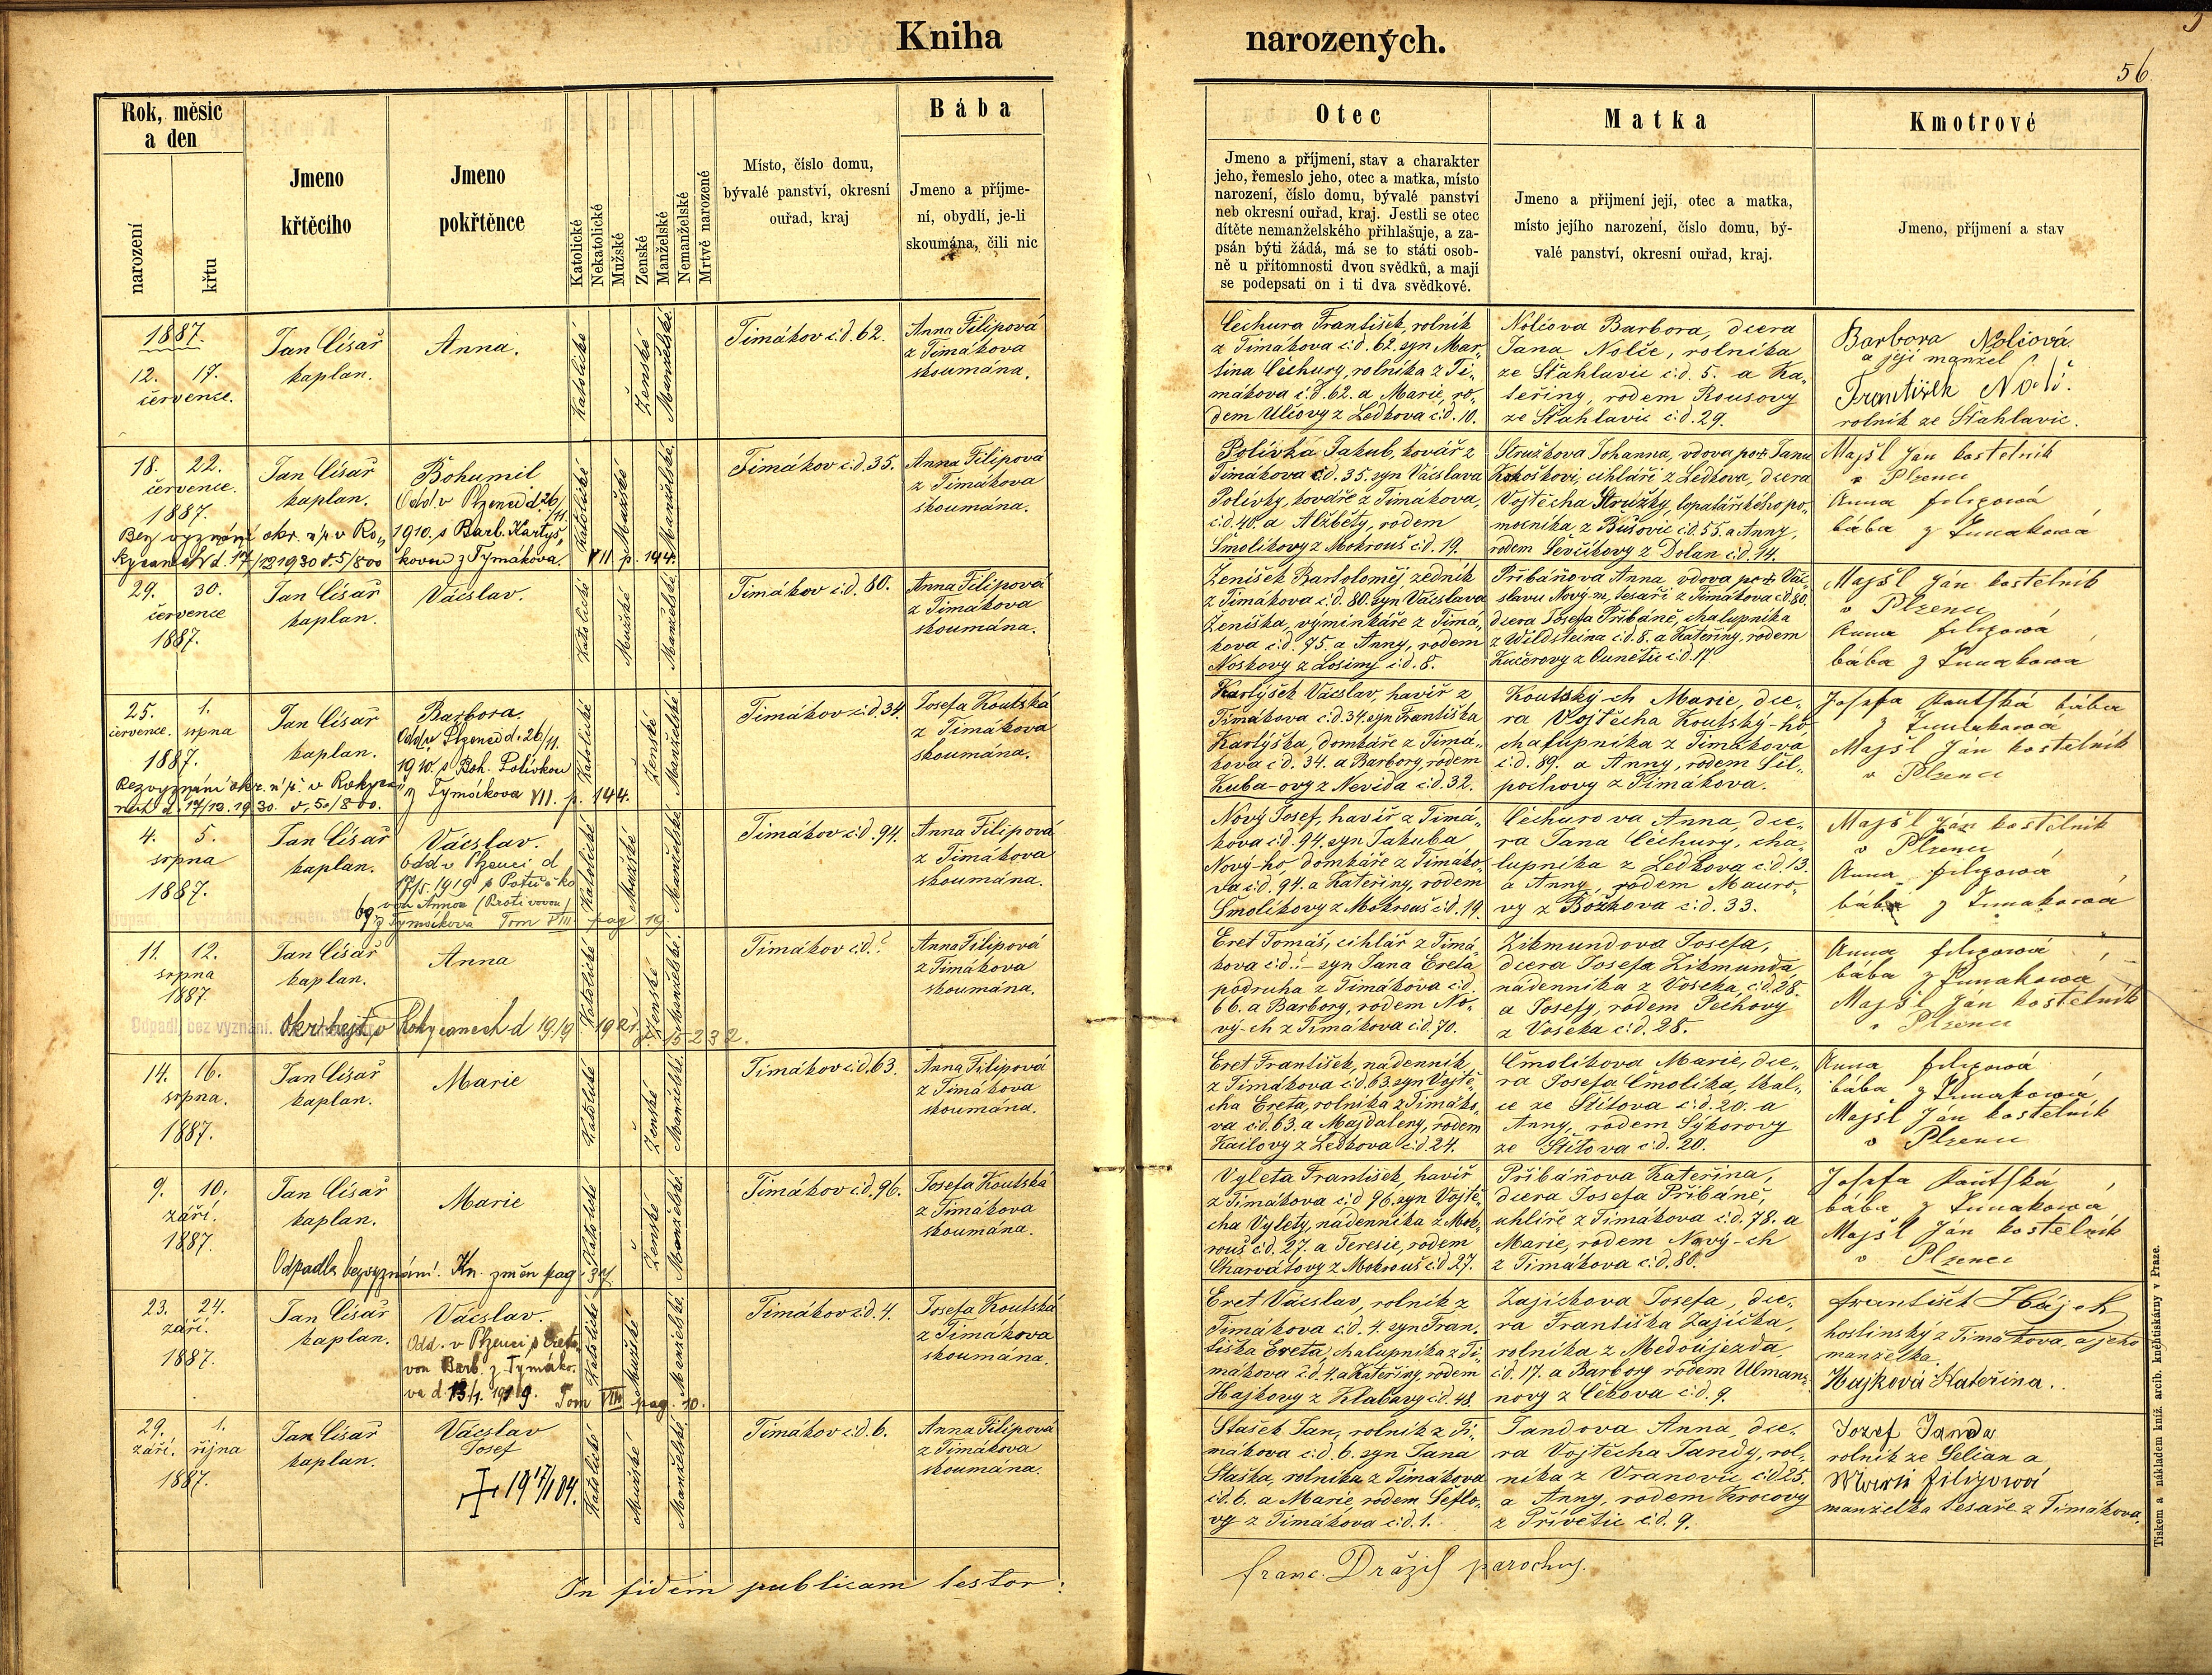 Kniha
narozených.
56.
Rok, měsíc
a den
narození
křtu
Jmeno
křtěcího
Jmeno
pokřtěnce
Katolické
Nekatolické
Mužské
Ženské
Manželské
Nemanželské
Mrtvě narozené
Místo, číslo domu,
bývalé panství, okresní
ouřad, kraj
Bába
Jmeno a příjme-
ní, obydlí, je-li
skoumána, čili nic
Otec
Jmeno a příjmení, stav a charakter
jeho, řemeslo jeho, otec a matka, místo
narození, číslo domu, bývalé panství
neb okresní ouřad, kraj. Jestli se otec
dítěte nemanželského přihlašuje, a za-
psán býti žádá, má se to státi osob-
ně u přítomnosti dvou svědků, a mají
se podepsati on i ti dva svědkové.
Matka
Jmeno a přijmení její, otec a matka,
místo jejího narození, číslo domu, bý-
valé panství, okresní ouřad, kraj.
Kmotrové
Jmeno, příjmení a stav
1887.
12. 17.
července.
Jan Císař
kaplan.
Anna.
Katolické
Ženské
Manželské.
Timákov č.d. 62.
Anna Filipová
z Timákova
skoumána.
Čechura František, rolník
z Timákova č.d. 62. syn Mar-
tina Čechury, rolníka z Ti-
mákova č.d. 62. a Marie, ro-
dem Ulčovy z Ledkova č.d. 10.
Nolčova Barbora, dcera
Jana Nolče, rolníka
ze Šťahlavic č.d. 5. a Ka-
teřiny, rodem Rousovy
ze Šťahlavic č.d. 29.
Barbora Nolčová
a její manžel
František Nolč.
rolník ze Šťahlavic.
18. 22.
července.
1887.
Jan Císař
kaplan.
Bohumil
Odd. v Plzenci d. 26/11.
1910. s Barb. Kartyš-
kovou z Tymákova. VII p. 144.
Bez vyznání okr. úř. v Ro-
kycanech d. 17/12 1930 č. 5/800
Katolické
Mužské
Manželské.
Timákov č.d. 35.
Anna Filipová
z Timákova
skoumána.
Polívka Jakub, kovář z
Timákova č.d. 35. syn Václava
Polívky, kováře z Timákova,
č.d. 40. a Alžběty, rodem
Smolíkovy z Mokrouš č.d. 19.
Stružkova Johanna, vdova po Janu
Kokoškovi, cihláři z Ledkova, dcera
Vojtěcha Stružky, lopatářského po-
mocníka z Bušovic č.d. 55. a Anny,
rodem Ševčíkovy z Dolan č.d. 14.
Majšl Ján kostelník
v Plzenci
Anna Filipová
bába z Timakowa
29. 30.
července
1887.
Jan Císař
kaplan.
Václav.
Katolické
Mužské
Manželské.
Timákov č.d. 80.
Anna Filipová
z Timákova
skoumána.
Ženíšek Bartoloměj, zedník
z Timákova č.d. 80. syn Václava
Ženíška, výminkáře z Timá-
kova č.d. 75. a Anny, rodem
Noskovy z Losiny č.d. 8.
Přibáňova Anna, vdova po Vác-
slavu Nový-m, tesaři z Timákova č.d. 80.
dcera Josefa Přibáně, chalupníka
z Wildsteina č.d. 8. a Kateřiny, rodem
Kučerovy z Čunětic č.d. 17.
Majšl Ján kostelník
v Plzenci
Anna Filipová
bába z Timakowa
25. 1.
července. srpna
1887.
Jan Císař
kaplan.
Barbora.
Odd. v Plzenci d. 26/11.
1910. s Boh. Polívkou
z Tymákova VII. p. 144.
Bez vyznání okr. úř. v Rokyca-
nech d. 17/12. 1930. č. 50/800.
Katolické
Ženské
Manželské
Timákov č.d. 34.
Josefa Koutská
z Timákova
skoumána.
Kartýšek Václav, havíř z
Timákova č.d. 34. syn Františka
Kartýška, domkáře z Timá-
kova č.d. 34. a Barbory, rodem
Kuba-ovy z Nevida č.d. 32.
Koutský-ch Marie, dce-
ra Vojtěcha Koutský-ho
chalupníka z Timákova
č.d. 89. a Anny, rodem Sil-
pochovy z Timákova.
Josefa Kautská bába
z Timakowa
Majšl Ján kostelník
v Plzenci
4. 5.
srpna
1887.
Jan Císař
kaplan.
Václav.
Odd. v Plzenci d
17/5. 1919 s Potůčko-
vou Annou (Protivovou)
z Tymákova Tom VIII. pag 19.
Katolické
Mužské
Manželské
Timákov č.d. 94.
Anna Filipová
z Timákova
skoumána.
Nový Josef, havíř z Timá-
kova č.d. 94. syn Jakuba
Nový-ho, domkáře z Timáko-
va č.d. 94. a Kateřiny, rodem
Smolíkovy z Mokrouš č.d. 19.
Čechurova Anna, dce-
ra Jana Čechury, cha-
lupníka z Ledkova č.d. 13.
a Anny, rodem Mauro-
vy z Božkova č.d. 33.
Majšl Ján kostelník
v Plzenci
Anna Filipová
bába z Timakowa
11. 12.
srpna
1887.
Jan Císař
kaplan.
Anna
Odpadl, bez vyznání. Okr. hejt. v Rokycanech d 19/9 1921. č. 15232.
Katolické
Ženské
Manželské.
Timákov č.d. ?
Anna Filipová
z Timákova
skoumána.
Eret Tomáš, cihlář z Timá-
kova č.d. ? – syn Jana Ereta
podruha z Timákova č.d.
66. a Barbory, rodem No-
vý-ch z Timákova č.d. 70.
Zikmundova Josefa,
dcera Josefa Zikmunda,
nádenníka z Voseka, č.d. 28.
a Josefy, rodem Pechovy
z Voseka č.d. 28.
Anna Filipová
bába z Timakowa
Majšl Ján kostelník
v Plzenci
14. 16.
srpna.
1887.
Jan Císař
kaplan.
Marie
Katolické
Ženské
Manželské.
Timákov č.d. 63.
Anna Filipová
z Timákova
skoumána.
Eret František, nádenník
z Timákova č.d. 63. syn Vojtě-
cha Ereta, rolníka z Timáko-
va č.d. 63. a Majdaleny, rodem
Kailovy z Ledkova č.d. 24.
Čmolíkova Marie, dce-
ra Josefa Čmolíka, tkal-
ce ze Štítova č.d. 20. a
Anny, rodem Sýkorovy
ze Štítova č.d. 20.
Anna Filipová
bába z Timakowa
Majšl Ján kostelník
v Plzenci
9. 10.
září.
1887.
Jan Císař
kaplan.
Marie
Odpadla bez vyznání. Kn. změn pag. 37.
Katolické
Ženské
Manželské.
Timákov č.d. 96.
Josefa Koutská
z Timákova
skoumána.
Vyleta František, havíř
z Timákova č.d 96. syn Vojtě-
cha Vylety, nádenníka z Mok-
rouš č.d. 27. a Teresie, rodem
Charvátovy z Mokrouš č.d. 27.
Přibáňova Kateřina,
dcera Josefa Přibáně,
uhlíře z Timákova č.d. 78. a
Marie, rodem Nový-ch
z Timákova č.d. 80.
Josefa Kautská
bába z Timakowa
Majšl Ján kostelník
v Plzenci
23. 24.
září.
1887.
Jan Císař
kaplan.
Václav.
Odd. v Plzenci s Ereto-
vou Barb. z Tymáko-
va d. 13/1. 1919. Tom VIII pag. 10.
Katolické
Mužské
Manželské.
Timákov č.d. 4.
Josefa Koutská
z Timákova
skoumána.
Eret Václav, rolník z
Timákova č.d. 4. syn Fran-
tiška Ereta, chalupníka z Ti-
mákova č.d. 4. a Kateřiny, rodem
Hajkovy z Klabavy č.d. 48.
Zajíčkova Josefa, dce-
ra Františka Zajíčka,
rolníka z Medoújezda
č.d. 17. a Barbory rodem Ulman-
novy z Čékova č.d. 9.
František Hájek
hostinský z Timákova, a jeho
manželka.
Hajková Kateřina.
29. 1.
září. října
1887.
Jan Císař
kaplan.
Václav
Josef
Katolické
Mužské
Manželské
Timákov č.d. 6.
Anna Filipová
z Timákova
skoumána.
Stašek Jan, rolník z Ti-
mákova č.d. 6. syn Jana
Staška, rolníka z Timákova
č.d. 6. a Marie, rodem Šeflo-
vy z Timákova č.d. 1.
Jandova Anna, dce-
ra Vojtěcha Jandy, rol-
níka z Vranovic č.d 25.
a Anny, rodem Krocovy
z Přívětic č.d. 9.
Jozef Janda
rolník ze Selian a
Marie Filipová
manželka tesaře z Timákova.
In fidem publicam testor:
Franc. Dražil parochus.
Tiskem a nákladem kníž. arcib. knihtiskárny v Praze.